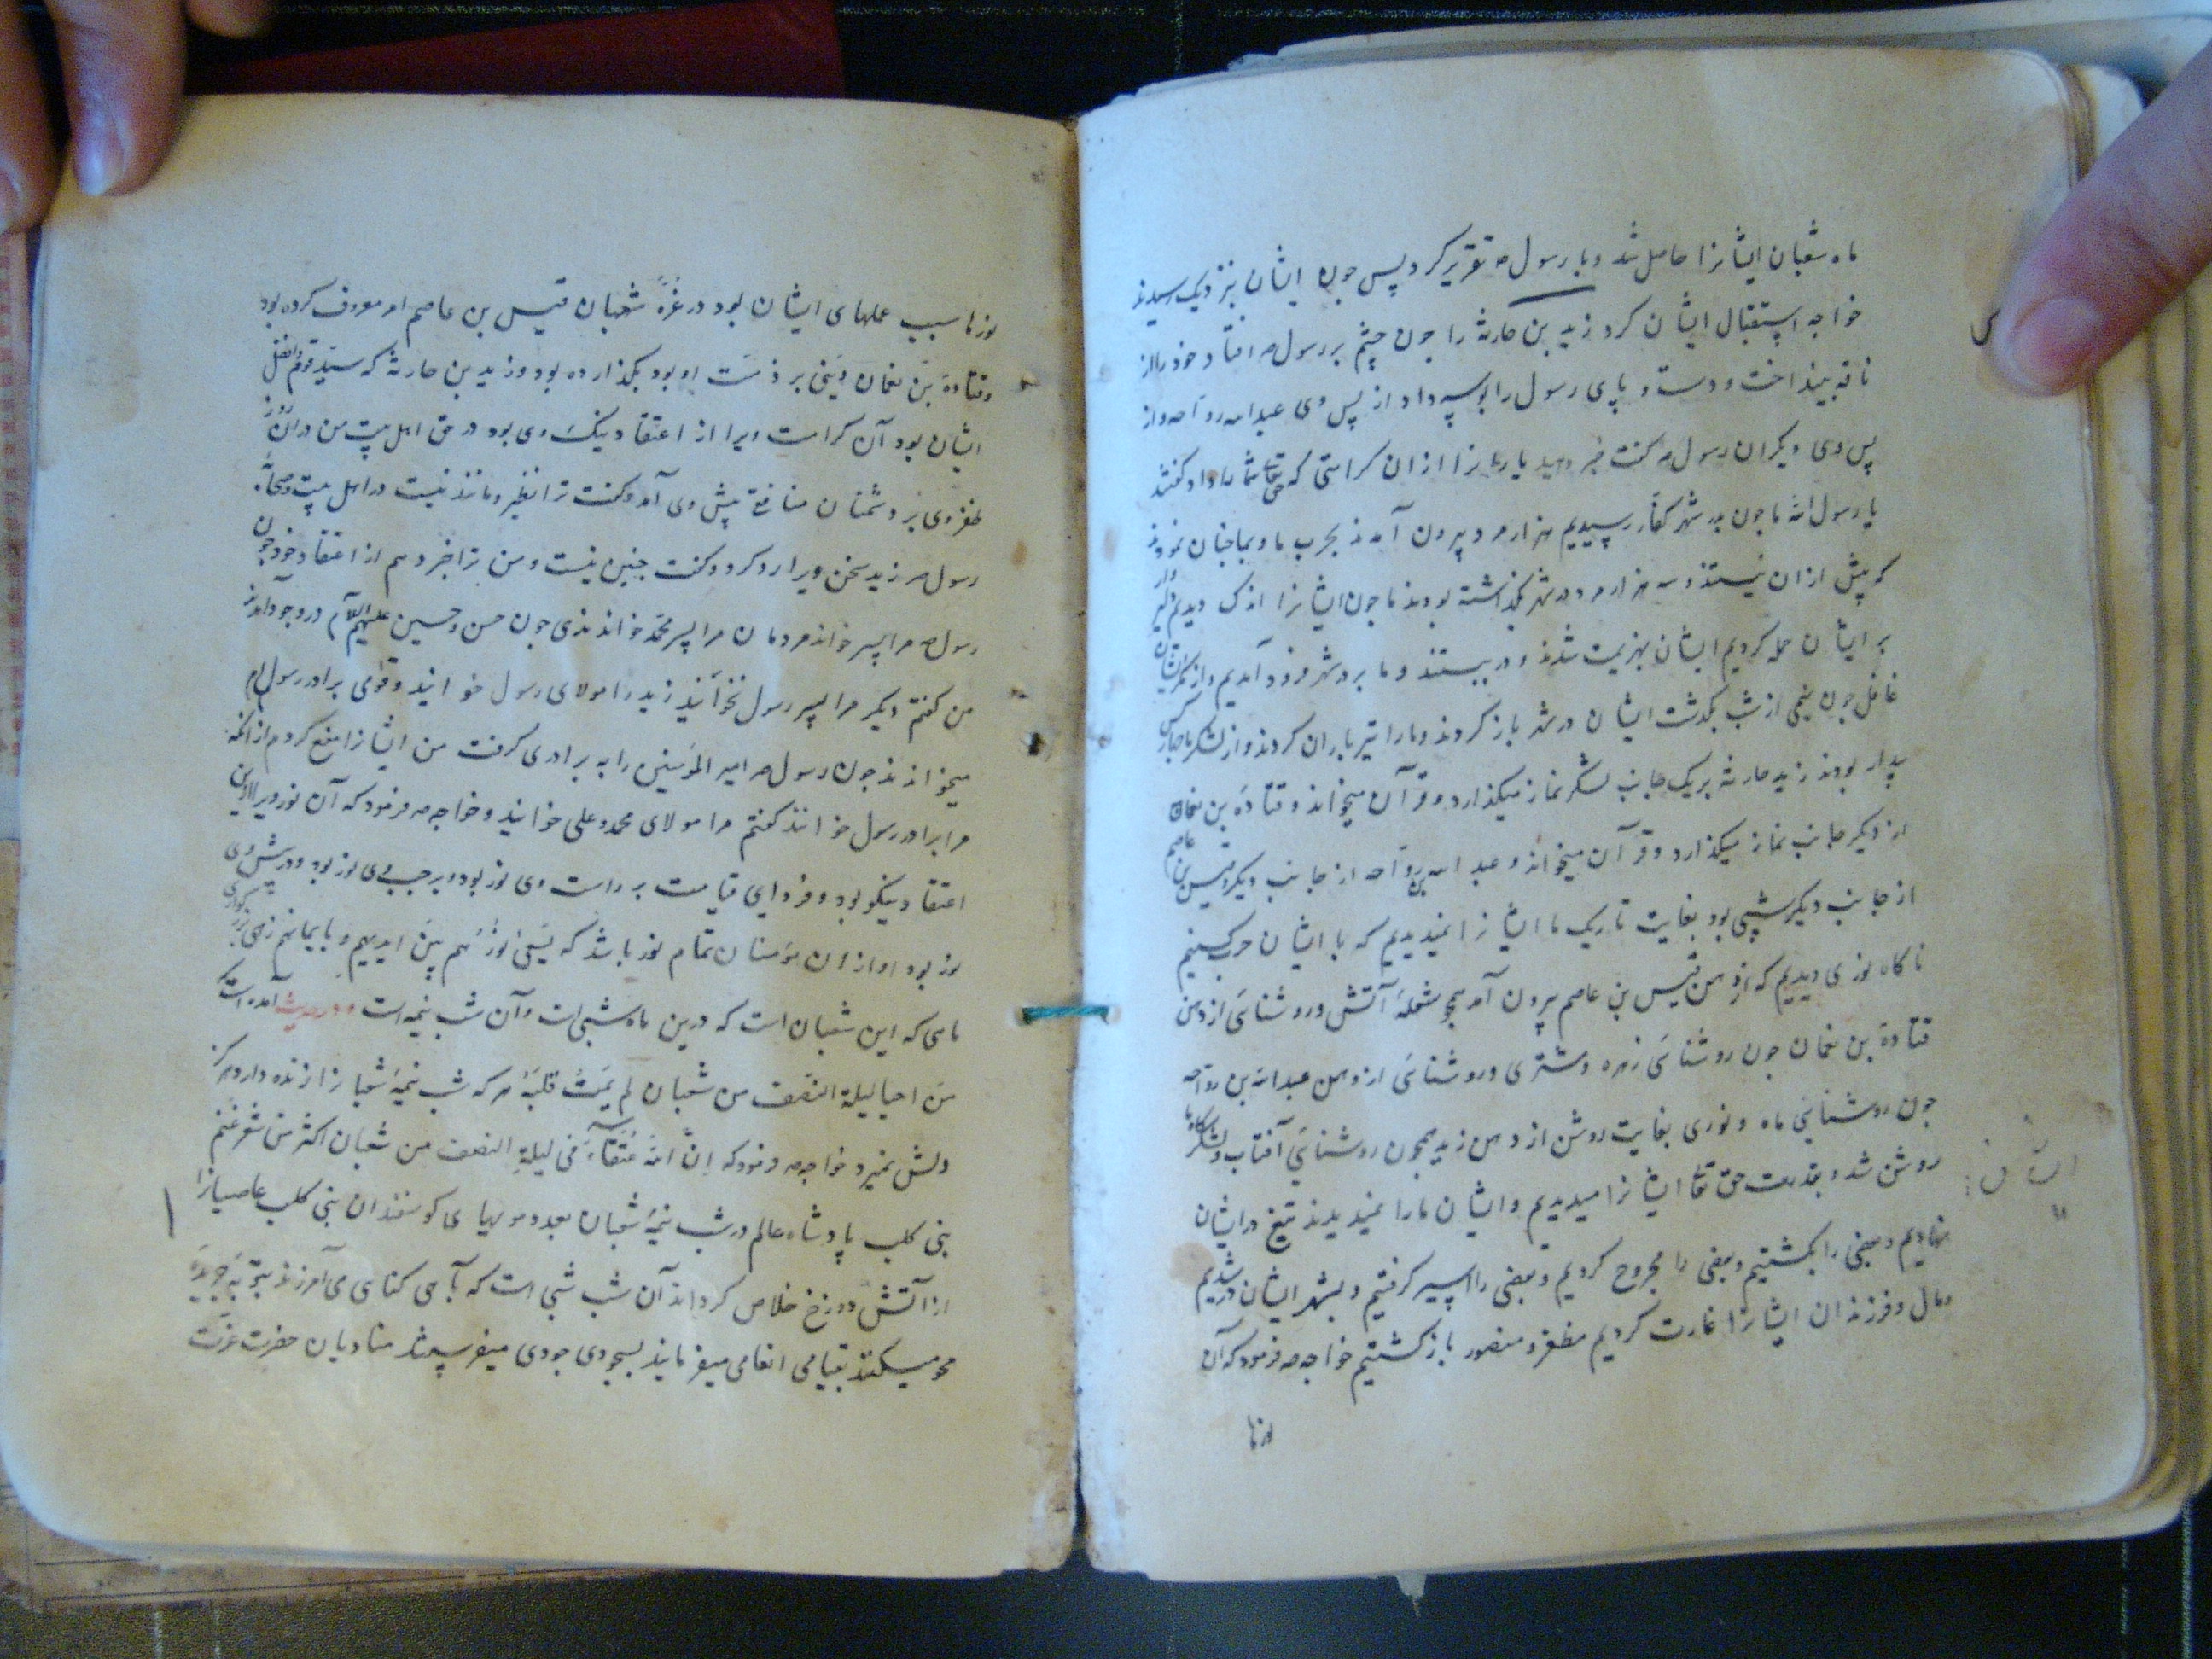 ماه شعبان ایشانرا حاصل شد و با رسول ص تقریر کرد پس چون ایشان بنزدیک رسیدند
خواجه استقبال ایشان کرد زید بن حارثه را چون چشم بر رسول ص افتاد خود را از
ناقه بینداخت و دست و پای رسول را بوسه داد از پس وی عبدالله رواحه و از
پس وی دیگران رسول ص گفت خبر دهید یارانرا ازان کرامتی که حق تعالی شما را داد گفتند
یا رسول الله ما چون بدر شهر کفار رسیدیم هزار مرد بیرون آمدند بحرب ما و بما چنان نمودند
که بیش ازان نیستند و سه هزار مرد در شهر بگذاشته بودند ما چون ایشانرا اندک دیدیم
بر ایشان حمله کردیم ایشان بهزیمت شدند و در ببستند و ما بر در شهر فرود آمدیم و از مکر ایشان
غافل چون نیمی از شب بگذشت ایشان در شهر باز کردند و ما را تیر باران کردند و از لشکر ما چهار کس
بیدار بودند زید حارثه بر یک جانب لشکر نماز میگذارد و قرآن میخواند و قتاده بن نعمان
از دیگر جانب نماز میگذارد و قرآن میخواند و عبدالله بن رواحه از جانب دیگر و قیس بن عاصم
از جانب دیگر شبی بود بغایت تاریک ما ایشانرا نمیدیدیم که با ایشان حرب کنیم
ناگاه نوری دیدیم که از دهن قیس بن عاصم بیرون آمد همچو شعله آتش و روشنائی از دهن
قتادة بن نعمان چون روشنائی زهره و مشتری و روشنائی از دهن عبدالله بن رواحه
چون روشنایی ماه و نوری بغایت روشن از دهن زید همچون روشنائی آفتاب و لشکرگاه ما
روشن شد و بقدرت حق تعالی ایشانرا میدیدیم و ایشان ما را نمیدیدند تیغ در ایشان
نهادیم و بعضی را بکشتیم و بعضی را مجروح کردیم و بعضی را اسیر گرفتیم و بشهر ایشان در شدیم
و مال و فرزندان ایشانرا غارت کردیم مظفر و منصور بازگشتیم خواجه ص فرمود که آن
نورها
نورها سبب عملهای ایشان بود در غرهٔ شعبان قیس بن عاصم امر معروف کرده بود
و قتادة بن نعمان دینی بر ذمت او بود بگذارده بود و زید بن حارثه که سید قوم و افضل
ایشان بود آن کرامت ویرا از اعتقاد نیک وی بود در حق اهل بیت من دران روز
ظفر وی بر دشمنان منافقی پیش وی آمد و گفت ترا نظیر و مانند نیست در اهل بیت و صحابهٔ
رسول ص زید سخن ویرا رد کرد و گفت چنین نیست و من ترا خبر دهم از اعتقاد خود چون
رسول ص مرا پسر خواند مردمان مرا پسر محمد خواندندی چون حسن و حسین علیهما السلام در وجود آمدند
من گفتم دیگر مرا پسر رسول نخوانید زید را مولای رسول خوانید و قومی برادر رسولم
میخواندند چون رسول ص امیر المؤمنین را به برادری گرفت من ایشانرا منع کردم از آنکه
مرا برادر رسول خوانند گفتم مرا مولای محمد و علی خوانید و خواجه ص فرمود که آن نور ویرا ازین
اعتقاد نیکو بود و فردای قیامت بر راست وی نور بود و بر چپ وی نور بود و در پیش وی
نور بود او ازان مؤمنان تمام نور باشد که یسعی نورهم بین ایدیهم و بایمانهم زهی بزرگواری
ماهی که این شعبان است که درین ماه شبی است و آن شب نیمه است و در حدیث آمده است که
من احیا لیلة النصف من شعبان لم یمت قلبه هر که شب نیمهٔ شعبانرا زنده دارد هرگز
دلش نمیرد و خواجه ص فرمود که ان لله عتقاء فی لیلة النصف من شعبان اکثر من شعر غنم
بنی کلب پادشاه عالم در شب نیمهٔ شعبان بعدد مویهای گوسفندان بنی کلب عاصیانرا
از آتش دوزخ خلاص گرداند آن شب شبی است که بآهی گناهی می آمرزند بتوبهٔ جریدهٔ
محو میکنند بقیامی انعامی میفرمایند بسجودی جودی میفرستند منادیان حضرت عزت